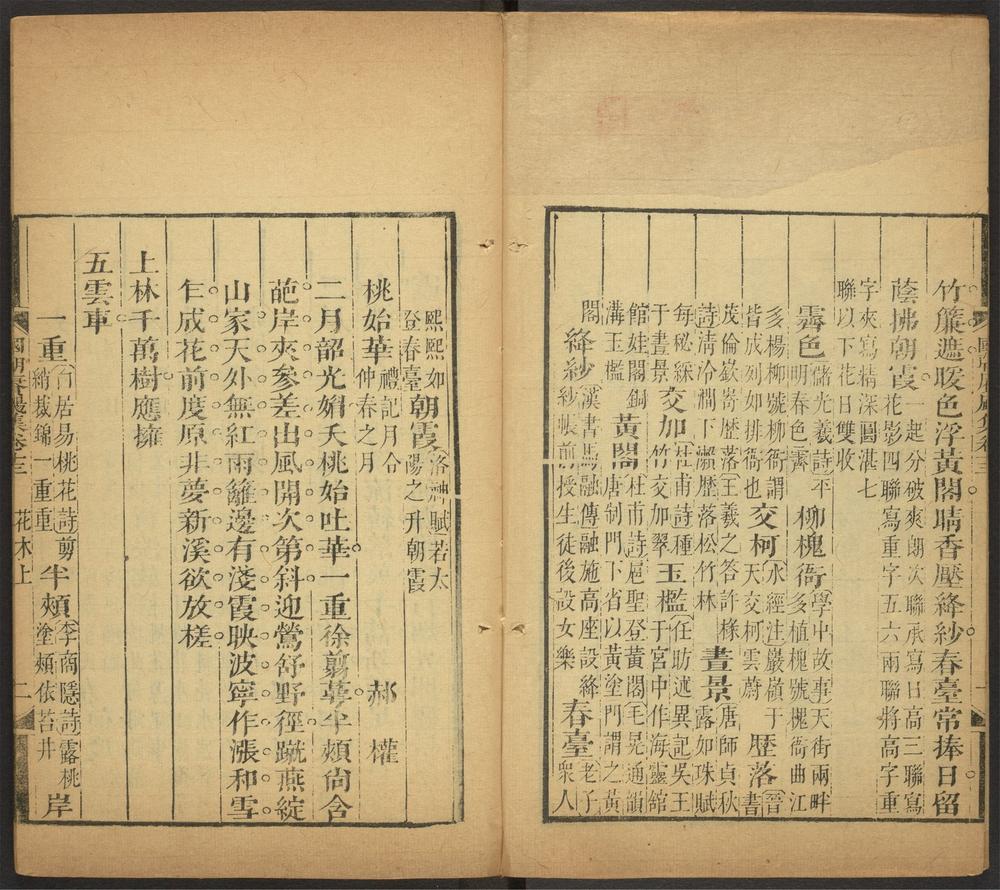 竹簾遮暖色浮黃閣晴香壓絳紗春臺常捧日留
蔭拂朝霞一起分破爽朗次聯承寫日高三聯寫
花影四聯寫重字五六兩聯將高字重
字夾寫精深圓湛七
聯以下花日雙收
霽色儲光羲詩平
明春色霽
柳槐衙學中故事天街兩畔
多植槐號槐衙曲江
多楊柳號柳衙謂
皆成列如排衙也
交柯水經注巖嶺于
天交柯雲蔚
歷落晉書
茂倫嶔嵜歷落王羲之答許椽
詩清泠澗下瀨歷落松竹林
晝景唐師貞秋
露如珠賦
每砭綵
于晝景
交加杜甫詩種
竹交加翠
玉檻任昉述異記吳王
于宮中作海靈館
館娃閣銅
溝玉檻
黃閣杜甫詩扈聖登黃閣毛晃通韻
唐制門下省以黃塗門謂之黃
閣
絳紗漢書馬融傳融施高座設絳
紗帳前授生徒後設女樂
春臺老子
衆人
熙熙如
登春臺
朝霞洛神賦若太
陽之升朝霞
桃始華禮記月令
仲春之月
郝權
二月韶光媚夭桃始吐華一重徐翦萼半頰尙含
葩岸夾參差出風開次第斜迎鶯舒野徑蹴燕綻
山家天外無紅雨籬邊有淺霞映波寧作漲和雪
乍成花前度原非夢新溪欲放槎
上林千萬樹應擁
五雲車
一重白居易桃花詩剪
綃裁錦一重重
半頰李商隱詩露桃
塗頰依苔井
岸
花木上
二